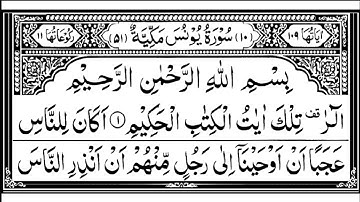 اٰيَاتُهَا ١٠٩ (١٠) سُوْرَةُ يُوْنُسَ مَكِّيَّةٌ (٥١) رُكُوْعَاتُهَا ١١
بِسْمِ اللّٰهِ الرَّحْمٰنِ الرَّحِيْمِ
الٓرٰ ۫ تِلْكَ اٰيٰتُ الْكِتٰبِ الْحَكِيْمِ ① اَكَانَ لِلنَّاسِ
عَجَبًا اَنْ اَوْحَيْنَاۤ اِلٰى رَجُلٍ مِّنْهُمْ اَنْ اَنْذِرِ النَّاسَ